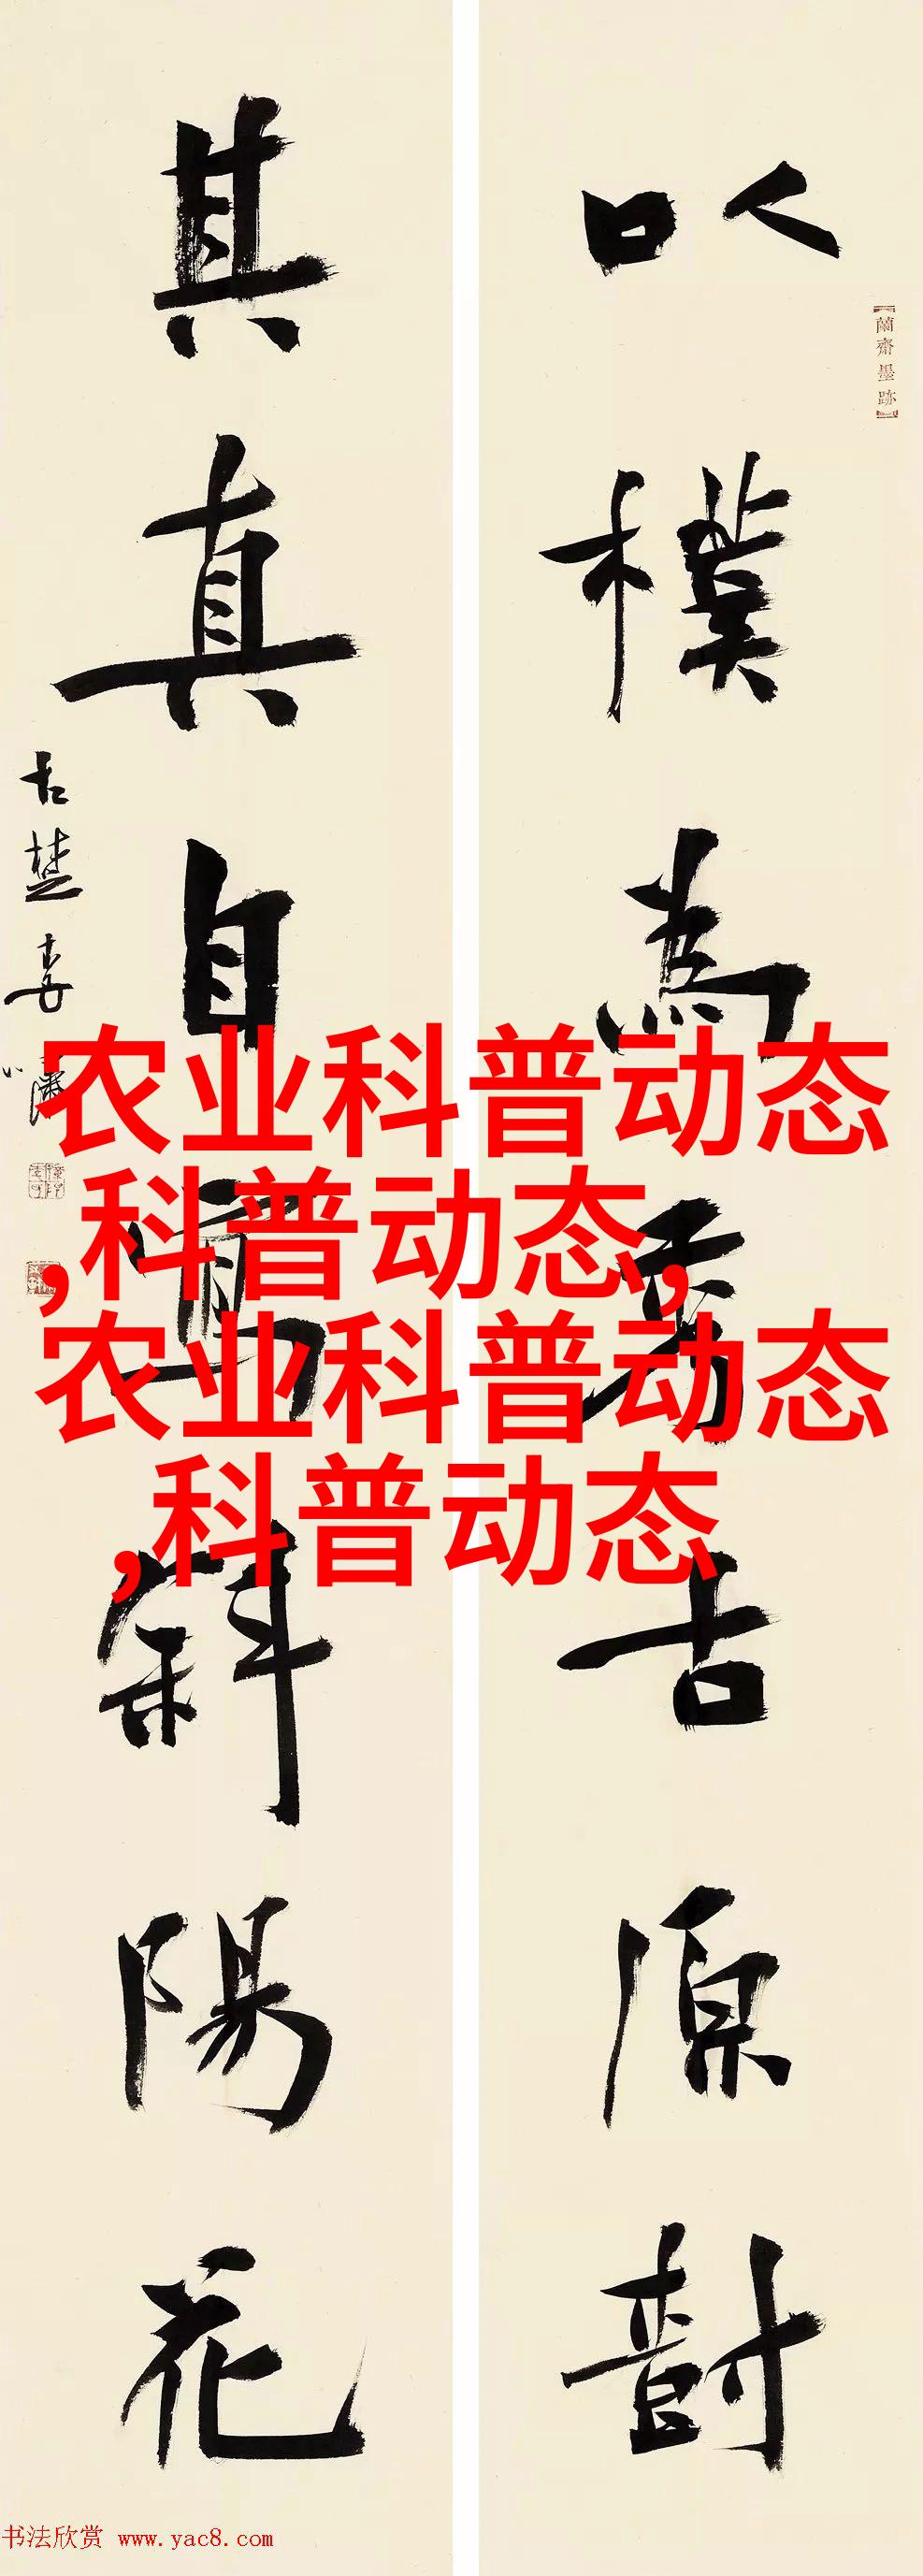 蘭齋墨跡
以樸為秀古原樹
其真自寫斜陽花
古楚李
农业科普动态
,科普动态,
农业科普动态
,科普动态
书法欣赏 www.yac8.com